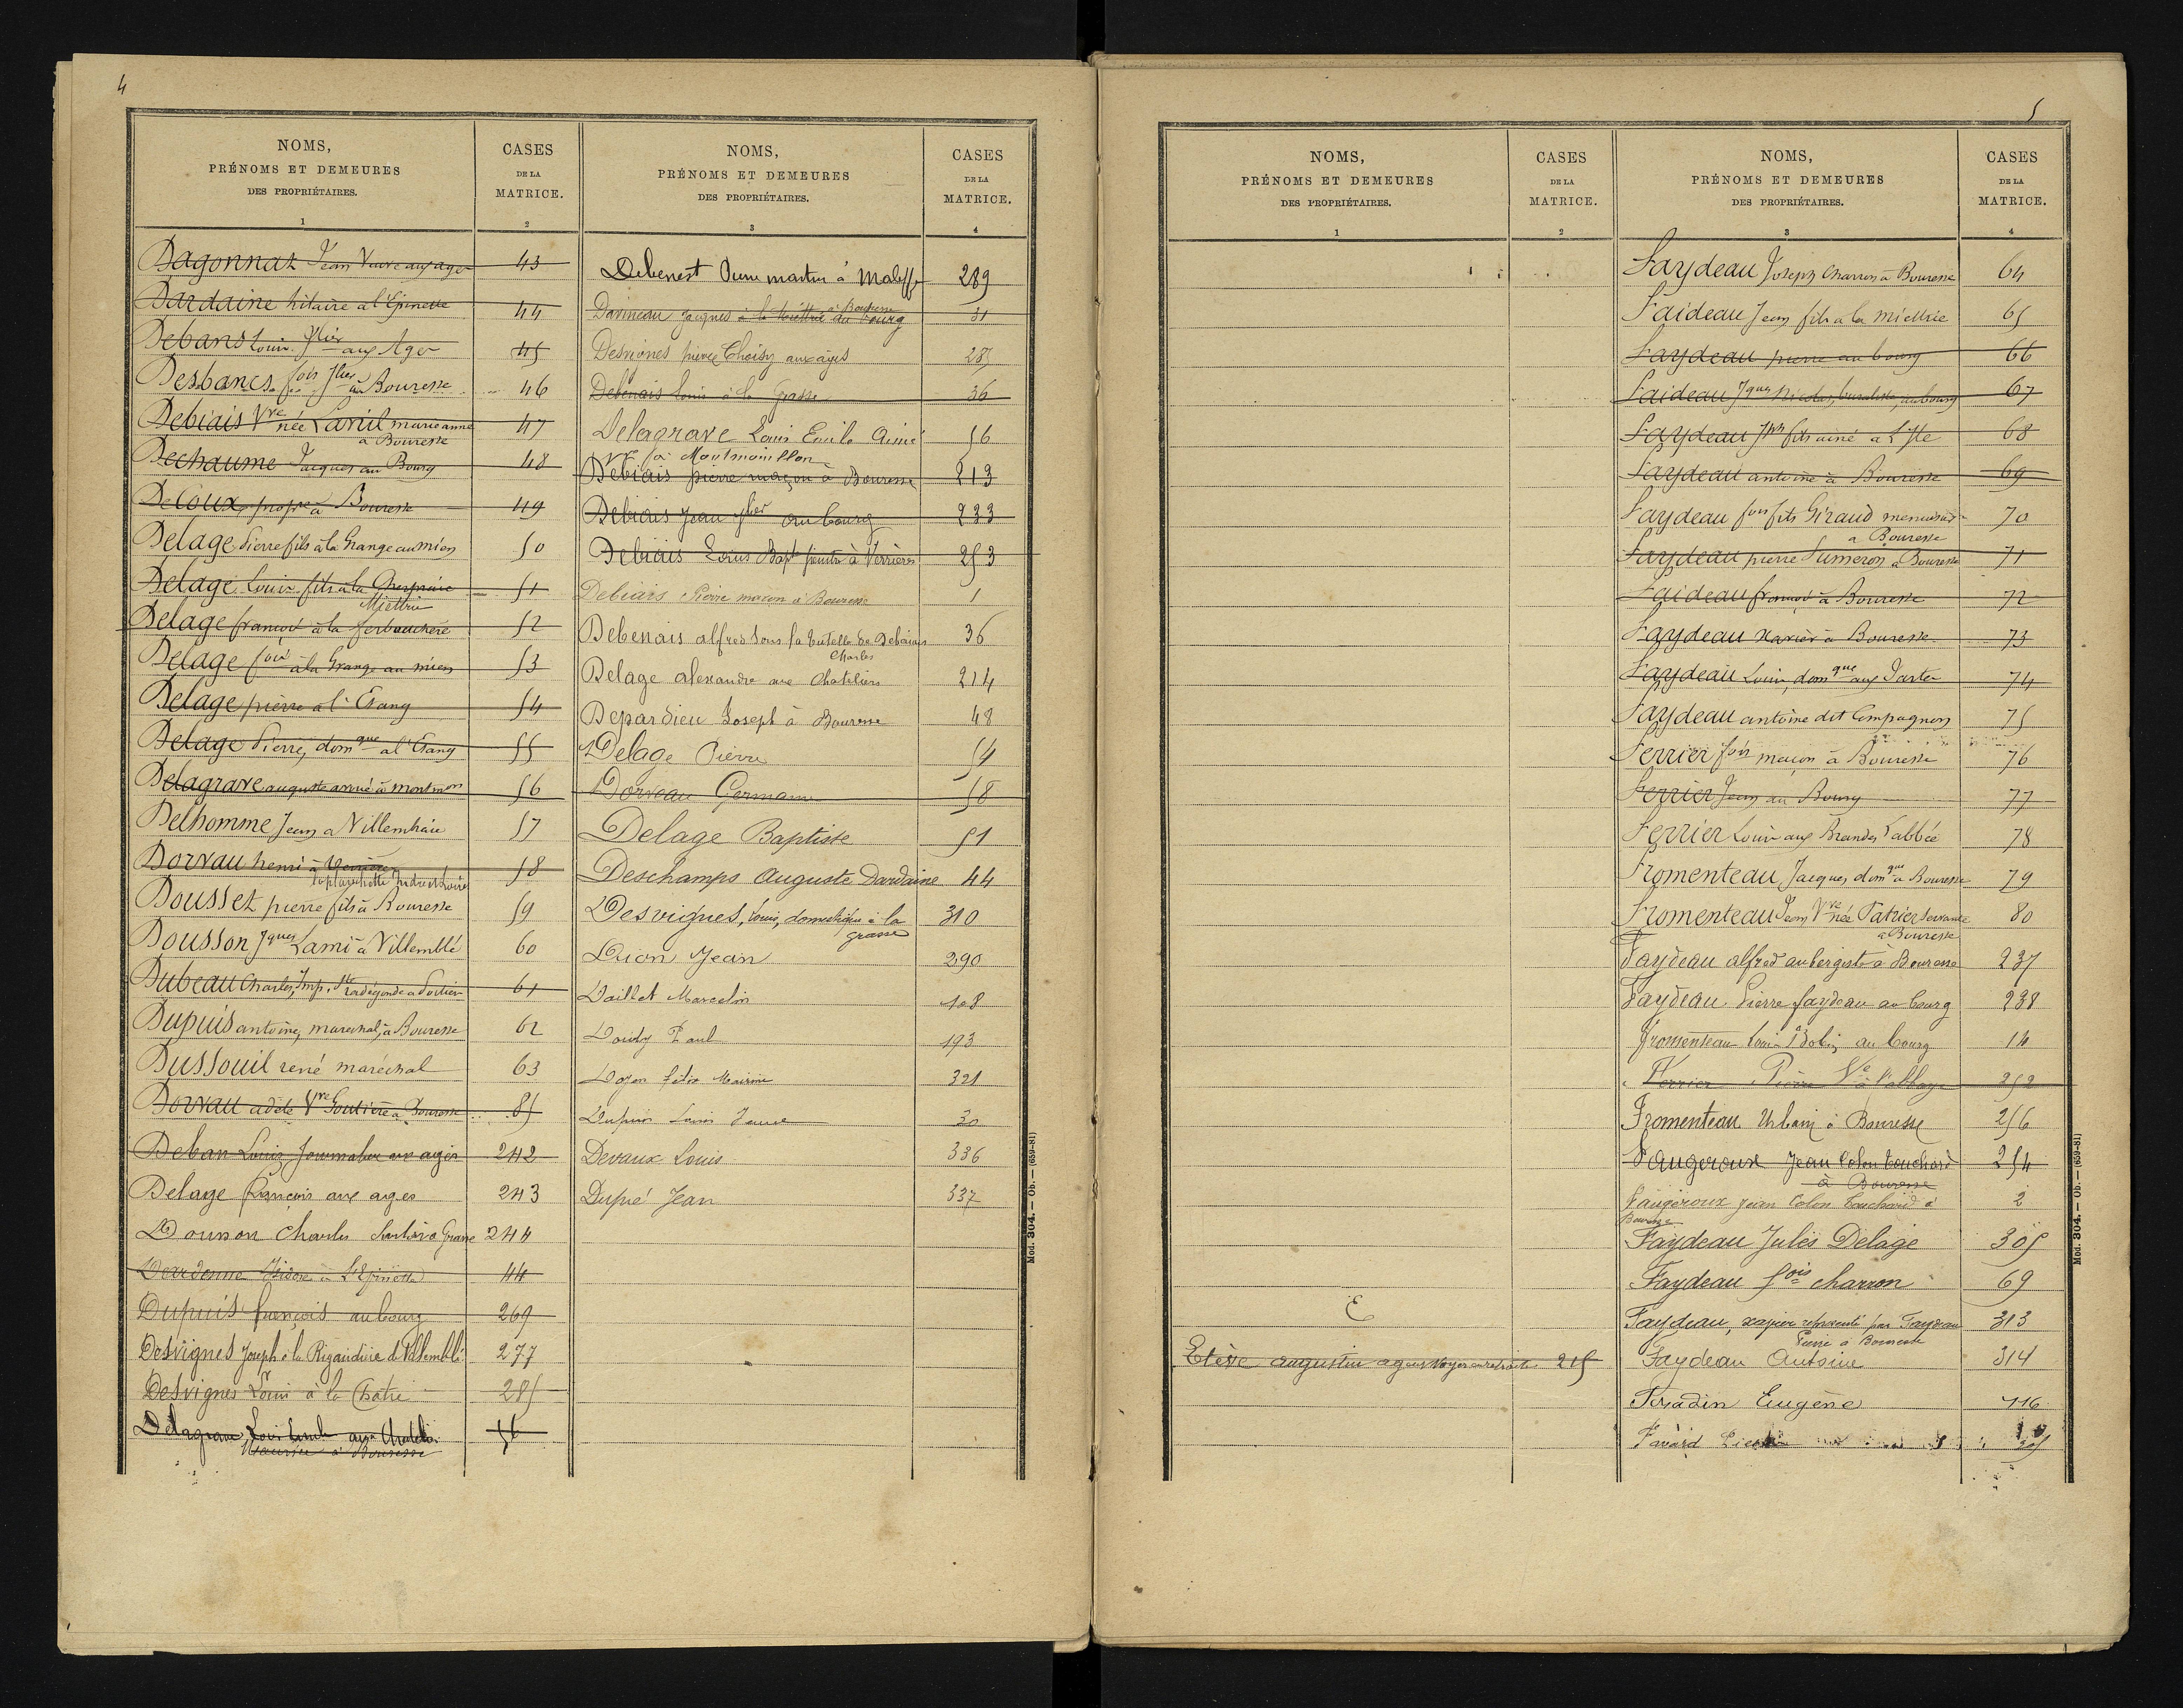 4
NOMS,
PRÉNOMS ET DEMEURES
DES PROPRIÉTAIRES.
1
CASES
DE LA
MATRICE.
2
Dagonnat Jean Veuve aux ages 43
Dardaine hilaire a l'Epinette 44
Debans Louis aux Ages 45
Desbancs fois à Bouresse 46
Debiais Vve née Lavil marie anne 47
à Bouresse
Dechaume Jacques au Bourg 48
Decoux propre à Bouresse 49
Delage Pierre fils à la Grange au mien 50
Delage Louis fils à la 51
Miettrie
Delage francois à la ferbouchère 52
Delage fois à la Grange au mien 53
Delage pierre à l'Etang 54
Delage Pierre, domque a l'Etang 55
Delagrave auguste aimé à montmon 56
Delhomme Jean a Villemhaie 57
Dorvau henri à Verrières 58
Indre et Loire
Dousset pierre fils à Bouresse 59
Dousson Jques Lami à Villemblé 60
Dubeau Charles, Imp. Ste radégonde a Poitier 61
Dupuis antoine, marechal, à Bouresse 62
Dussouil rené maréchal 63
Dorvau adèle Vve Goutière a Bouresse 85
Deban Louis Journalier aux ages 242
Delage François aux ages 243
Dousson Charles 244
Dardenne Isidore à L'Epinette 44
Dupuis françois au bourg 269
Desvignes Joseph à la Rigaudière de Villemblé 277
Desvignes Louis à la Chatre 285
Delagrave Louis Emile aux 56
Maurice à Bouresse
NOMS,
PRÉNOMS ET DEMEURES
DES PROPRIÉTAIRES.
3
CASES
DE LA
MATRICE.
4
Debenest Pierre martin à 289
Davineau Jacques à la Miettrie au bourg 31
à Bouresse
Desvignes pierre Choisy aux âges 285
Debenais Louis à la Grasse 36
Delagrave Louis Emile Aimé 56
à Montmorillon
Debiais pierre maçon à Bouresse 213
Debiais Jean au bourg 233
Debiais Louis Bapte peintre à Verrières 253
Debiais Pierre maçon à Bouresse 1
Debenais alfred sous la tutelle de Debiais 36
Charles
Delage alexandre aux Chateliers 214
Depardieu Joseph à Bouresse 48
Delage Pierre 54
Dorveau Germain 58
Delage Baptiste 51
Deschamps Auguste Dardaine 44
Desvignes, Louis, domestique à la 310
grasse
Dion Jean 290
Daillet Marcelin 108
Doidy Paul 193
Doyen félix 321
Dupuis Louis 30
Devaux Louis 336
Dupré Jean 337
Mod. 304. — Ob. — (659-81)
5
NOMS,
PRÉNOMS ET DEMEURES
DES PROPRIÉTAIRES.
1
CASES
DE LA
MATRICE.
2
E
Etève augustin agent voyer en retraite 215
NOMS,
PRÉNOMS ET DEMEURES
DES PROPRIÉTAIRES.
3
CASES
DE LA
MATRICE.
4
Faydeau Joseph Charron à Bouresse 64
Faideau Jean fils a la miettrie 65
Faydeau pierre au bourg 66
Faideau Jques Nicolas, buraliste, au bourg 67
Faydeau Jph fils ainé a L'Ile 68
Faydeau antoine à Bouresse 69
Faydeau fois fils Giraud menuisier 70
a Bouresse
Faydeau pierre Sumeron a Bouresse 71
Faideau françois à Bouresse 72
Faydeau Xavier à Bouresse 73
Faydeau Louis, domque aux 74
Faydeau antoine dit Compagnon 75
Ferrier fois maçon à Bouresse 76
Ferrier Jean au Bourg 77
Ferrier Louis aux Brandes l'abbée 78
Fromenteau Jacques, domque à Bouresse 79
Fromenteau Jean Vve née Patrier servante 80
à Bouresse
Faydeau alfred aubergiste à Bouresse 237
Faydeau Pierre faydeau au bourg 238
Fromenteau Louis Bobin au bourg 14
Ferrier Pierre Ve à l'abbaye 252
Fromenteau Urbain à Bouresse 256
Faugeroux Jean Colon Touchard 254
à Bouresse
Faugeroux Jean Colon Touchard à 2
Bouresse
Faydeau Jules Delage 305
Faydeau fois charron 69
Faydeau, xavier représenté par Faydeau 313
Pierre à Bouresse
Faydeau Antoine 314
Fradin Eugène 116
Favard
Mod. 304. — Ob. — (659-81)